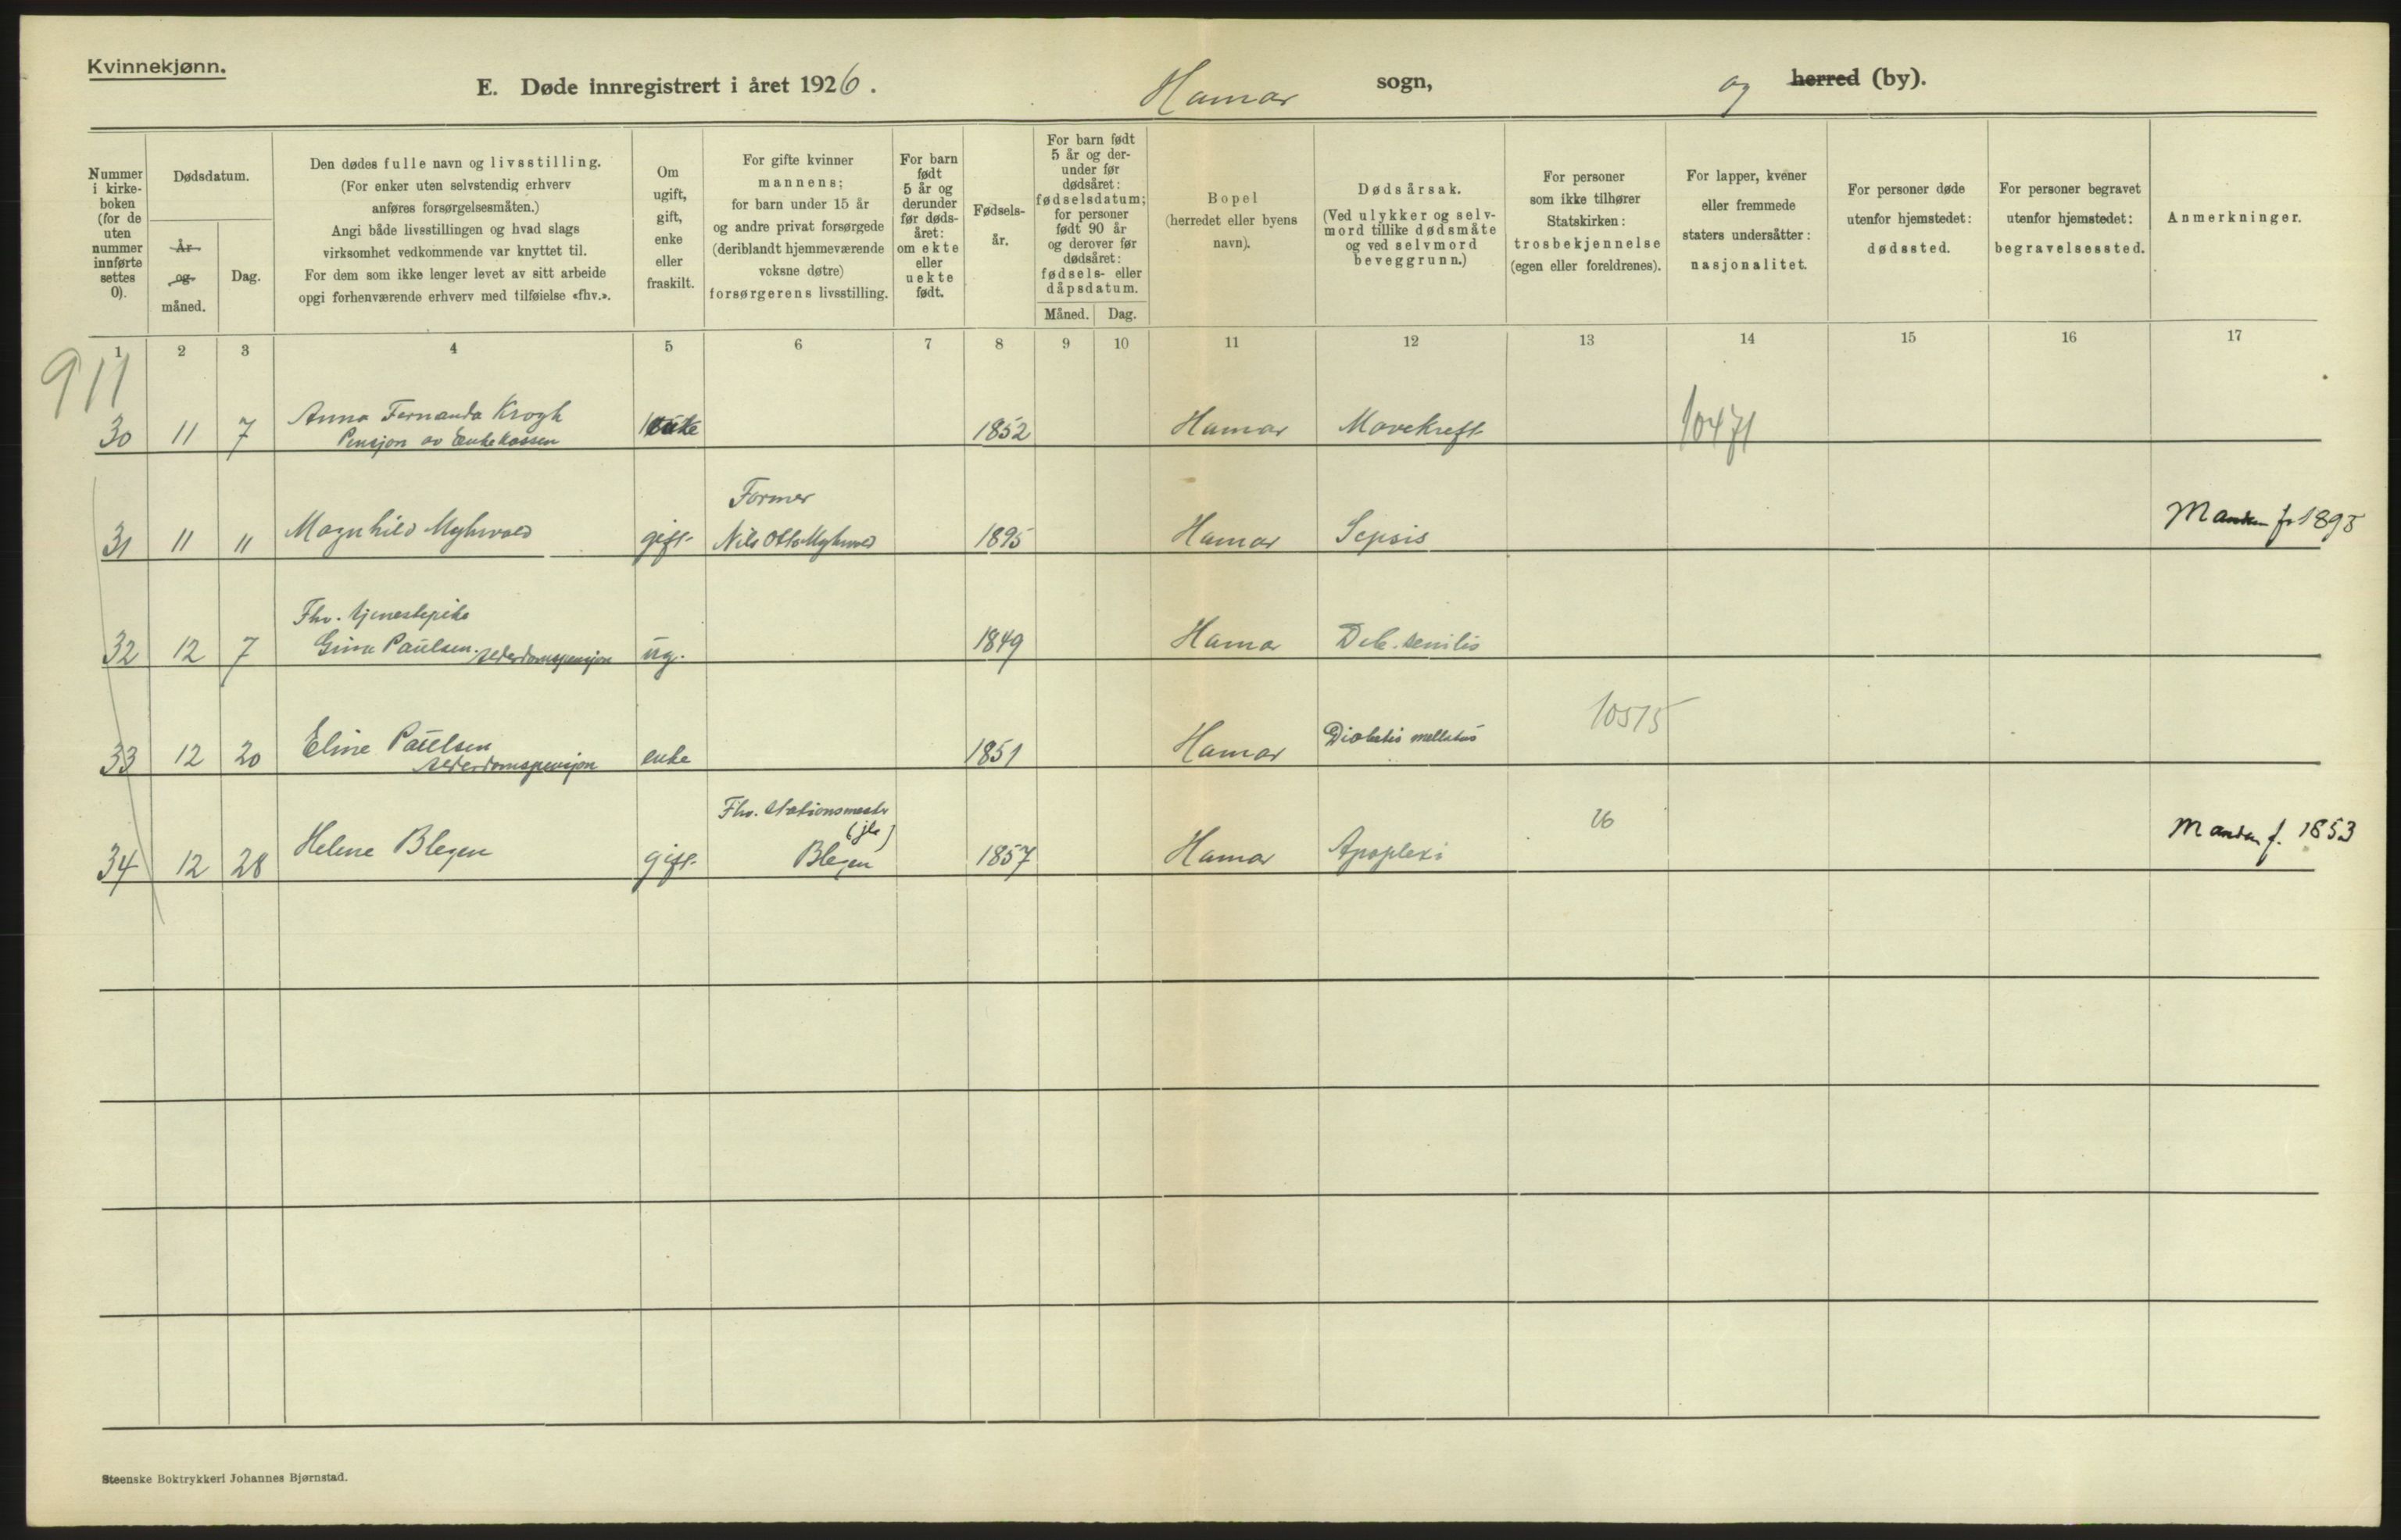 Kvinnekjønn.
E. Døde innregistrert i året 1926. Hamar sogn, og herred (by).
Nummer i kirke-boken (for de uten nummer innførte settes 0).
Dødsdatum.
År og måned.
Dag.
Den dødes fulle navn og livsstilling.
(For enker uten selvstendig erhverv
anføres forsørgelsesmåten.)
Angi både livsstillingen og hvad slags
virksomhet vedkommende var knyttet til.
For dem som ikke lenger levet av sitt arbeide
opgi forhenværende erhverv med tilføielse «fhv.».
Om ugift, gift, enke eller fraskilt.
For gifte kvinner
mannens;
for barn under 15 år
og andre privat forsørgede
(deriblandt hjemmeværende
voksne døtre)
forsørgerens livsstilling.
For barn født 5 år og derunder før døds-året: om ekte eller uekte født.
Fødsels-år.
For barn født
5 år og der-
under før
dødsåret:
fødselsdatum;
for personer
født 90 år
og derover før
dødsåret:
fødsels- eller
dåpsdatum.
Måned. Dag.
Bopel
(herredet eller byens
navn).
Dødsårsak.
(Ved ulykker og selv-
mord tillike dødsmåte
og ved selvmord
beveggrunn.)
For personer
som ikke tilhører
Statskirken:
trosbekjennelse
(egen eller foreldrenes).
For lapper, kvener
eller fremmede
staters undersåtter:
nasjonalitet.
For personer døde
utenfor hjemstedet:
dødssted.
For personer begravet
utenfor hjemstedet:
begravelsessted.
Anmerkninger.
1 2 3 4 5 6 7 8 9 10 11 12 13 14 15 16 17
911
30 11 7 Anna Fernanda Krogh enke 1852 Hamar Mavekreft 10471
Pensjon av Enkekassen
Former
31 11 11 Magnhild Myhrvold gift Nils Otto Myhrvold 1895 Hamar Sepsis Manden f. 1895
Fhv. tjenestepike
32 12 7 Gina Paulsen. Alderdomspensjon ug. 1849 Hamar Deb. senilis
33 12 20 Eline Paulsen enke 1851 Hamar Diabetis mellitus 10515
Alderdomspensjon
Fhv. Stationsmester
(jb)
34 12 28 Helene Blegen gift Blegen 1857 Hamar Apoplexi 16 Manden f. 1853
Steenske Boktrykkeri Johannes Bjørnstad.